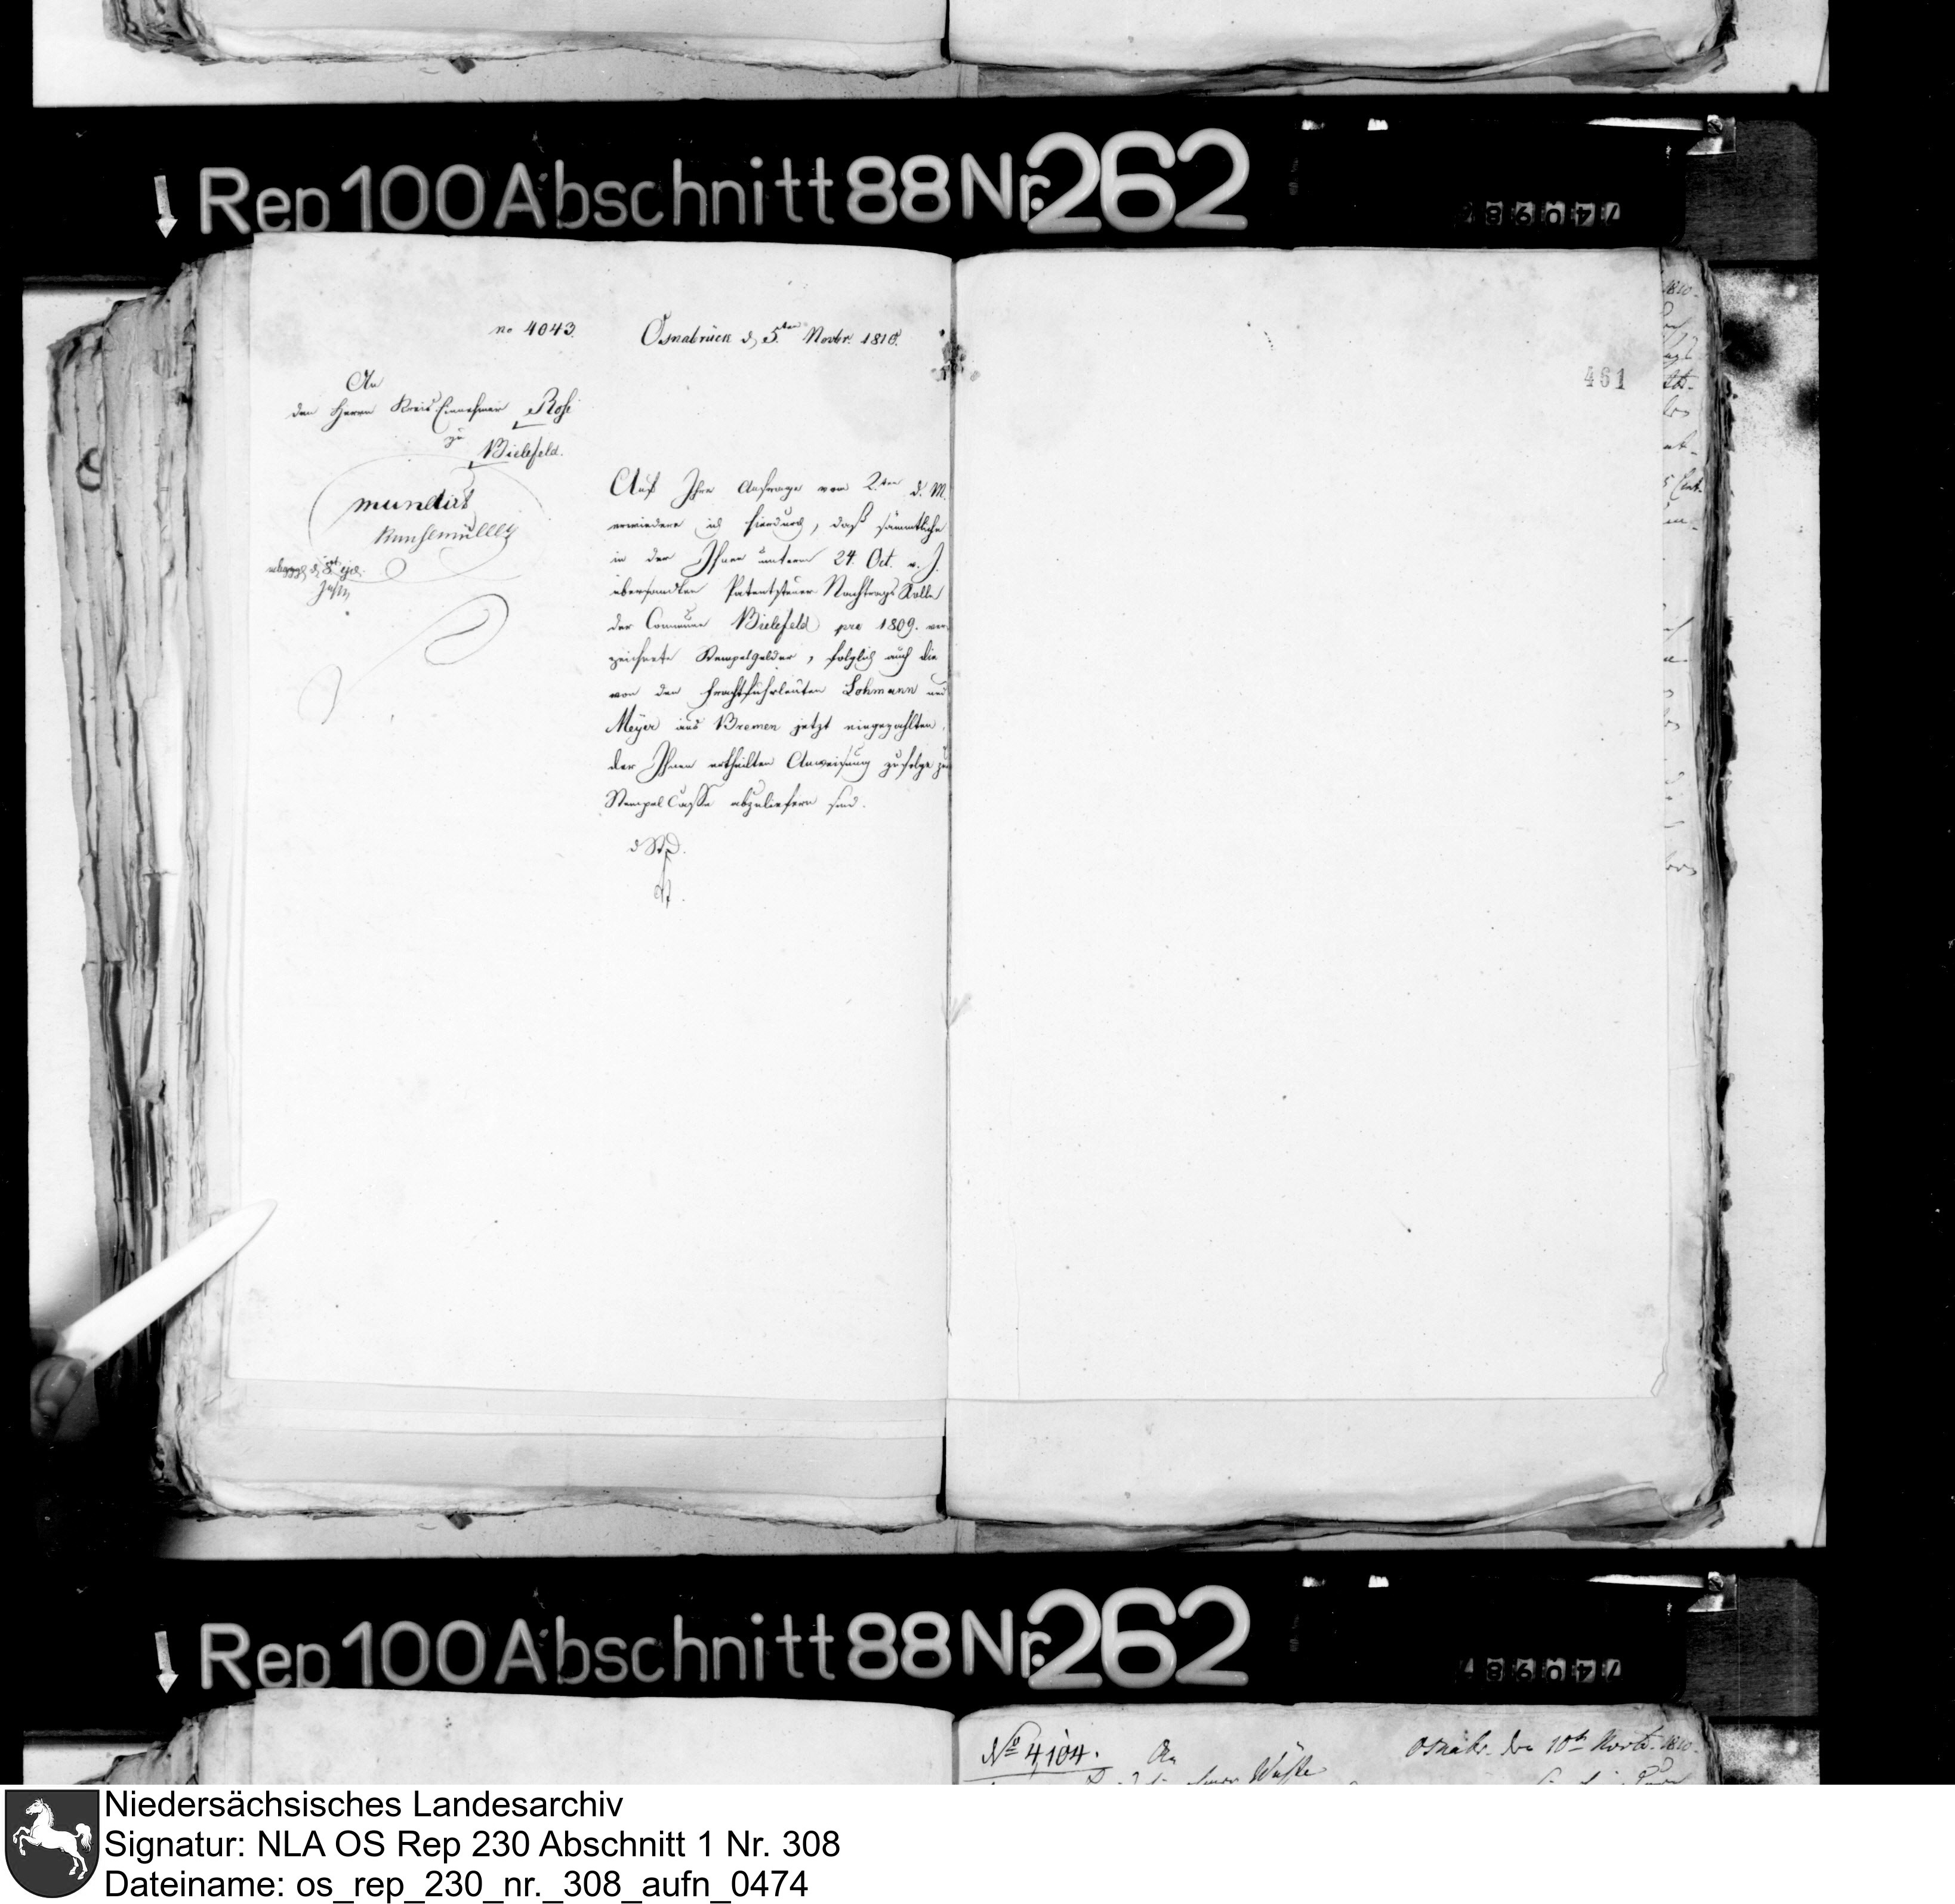 Rep 100 Abschnitt 88 Nr. 262
740987
no 4043.
Osnabrück d. 5ten Novbr. 1810.
An
den Herrn Kreis Einnehmer Rose
zu
Bielefeld.
mundirt
Kunsemüller
461
Auf Ihre Anfrage vom 2ten d. M.
erwiedere ich hierdurch, daß sämmtliche
in der Ihnen unterm 24. Oct. v. J.
übersandten Patentsteuer Nachtrags Rolle
der Commune Bielefeld pro 1809. ver-
zeichnete Stempelgelder, folglich auch die
von den Frachtfuhrleuten Lohmann und
Meyer aus Bremen jetzt eingezahlten,
der Ihnen ertheilten Anweisung zufolge zur
Stempel Casse abzuliefern sind.
d StD.
Rep 100 Abschnitt 88 Nr. 262
740987
No 4104. An
Osnabr. den 10t Novbr. 1810.
Niedersächsisches Landesarchiv
Signatur: NLA OS Rep 230 Abschnitt 1 Nr. 308
Dateiname: os_rep_230_nr._308_aufn_0474